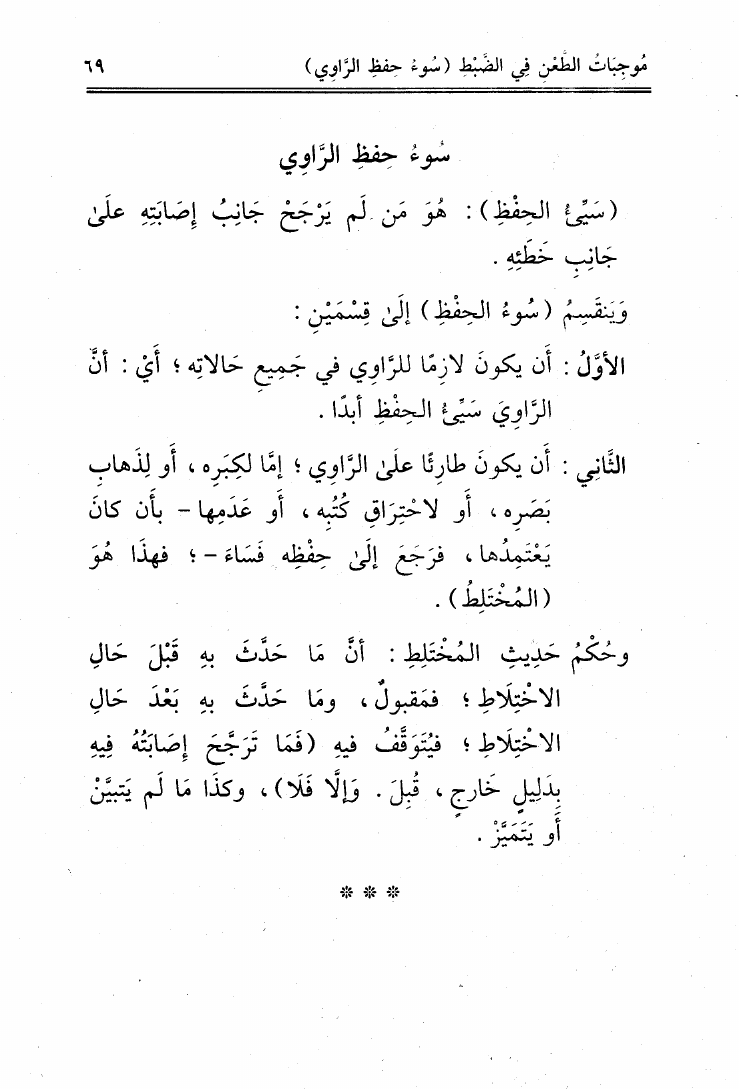 مُوجِبَاتُ الطَّعْنِ فِي الضَّبْطِ (سُوءُ حِفظِ الرَّاوِي) ٦٩
سُوءُ حِفظِ الرَّاوِي
(سَيِّئُ الحِفْظِ): هُوَ مَن لَم يَرْجَحْ جَانِبُ إِصَابَتِهِ علَىٰ
جَانِبِ خَطَئِهِ .
وَيَنقَسِمُ (سُوءُ الحِفْظِ) إِلَىٰ قِسْمَيْنِ :
الأوَّلُ : أَن يكونَ لازِمًا للرَّاوِي في جَمِيعِ حَالاتِه ؛ أَيْ : أنَّ
الرَّاوِيَ سَيِّئُ الحِفْظِ أبَدًا .
الثَّانِي : أَن يكونَ طارِئًا علىٰ الرَّاوِي ؛ إمَّا لكِبَرِه ، أَو لِذَهابِ
بَصَرِه ، أَو لاحْتِرَاقِ كُتُبِه ، أَو عَدَمِها - بأَن كانَ
يَعْتَمِدُها ، فرَجَعَ إِلىٰ حِفْظِه فَسَاءَ - ؛ فهذا هُوَ
(المُخْتَلِطُ) .
وحُكْمُ حَدِيثِ المُخْتَلِطِ : أنَّ مَا حَدَّثَ بِهِ قَبْلَ حَالِ
الاخْتِلَاطِ ؛ فمَقبولٌ ، ومَا حَدَّثَ بِهِ بَعْدَ حَالِ
الاخْتِلَاطِ ؛ فيُتَوَقَّفُ فيهِ (فَمَا تَرَجَّحَ إِصَابَتُهُ فِيهِ
بِدَلِيلٍ خَارِجٍ ، قُبِلَ . وَإِلَّا فَلَا) ، وكذا مَا لَم يَتبيَّنْ
أَو يَتَمَيَّزْ .
※ ※ ※